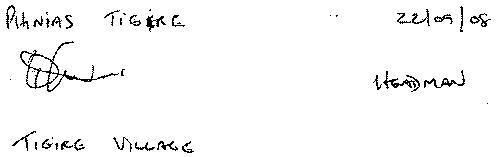 PHNIAS TIGIRE 22/09/08
HEADMAN
TIGIRE VILLAGE